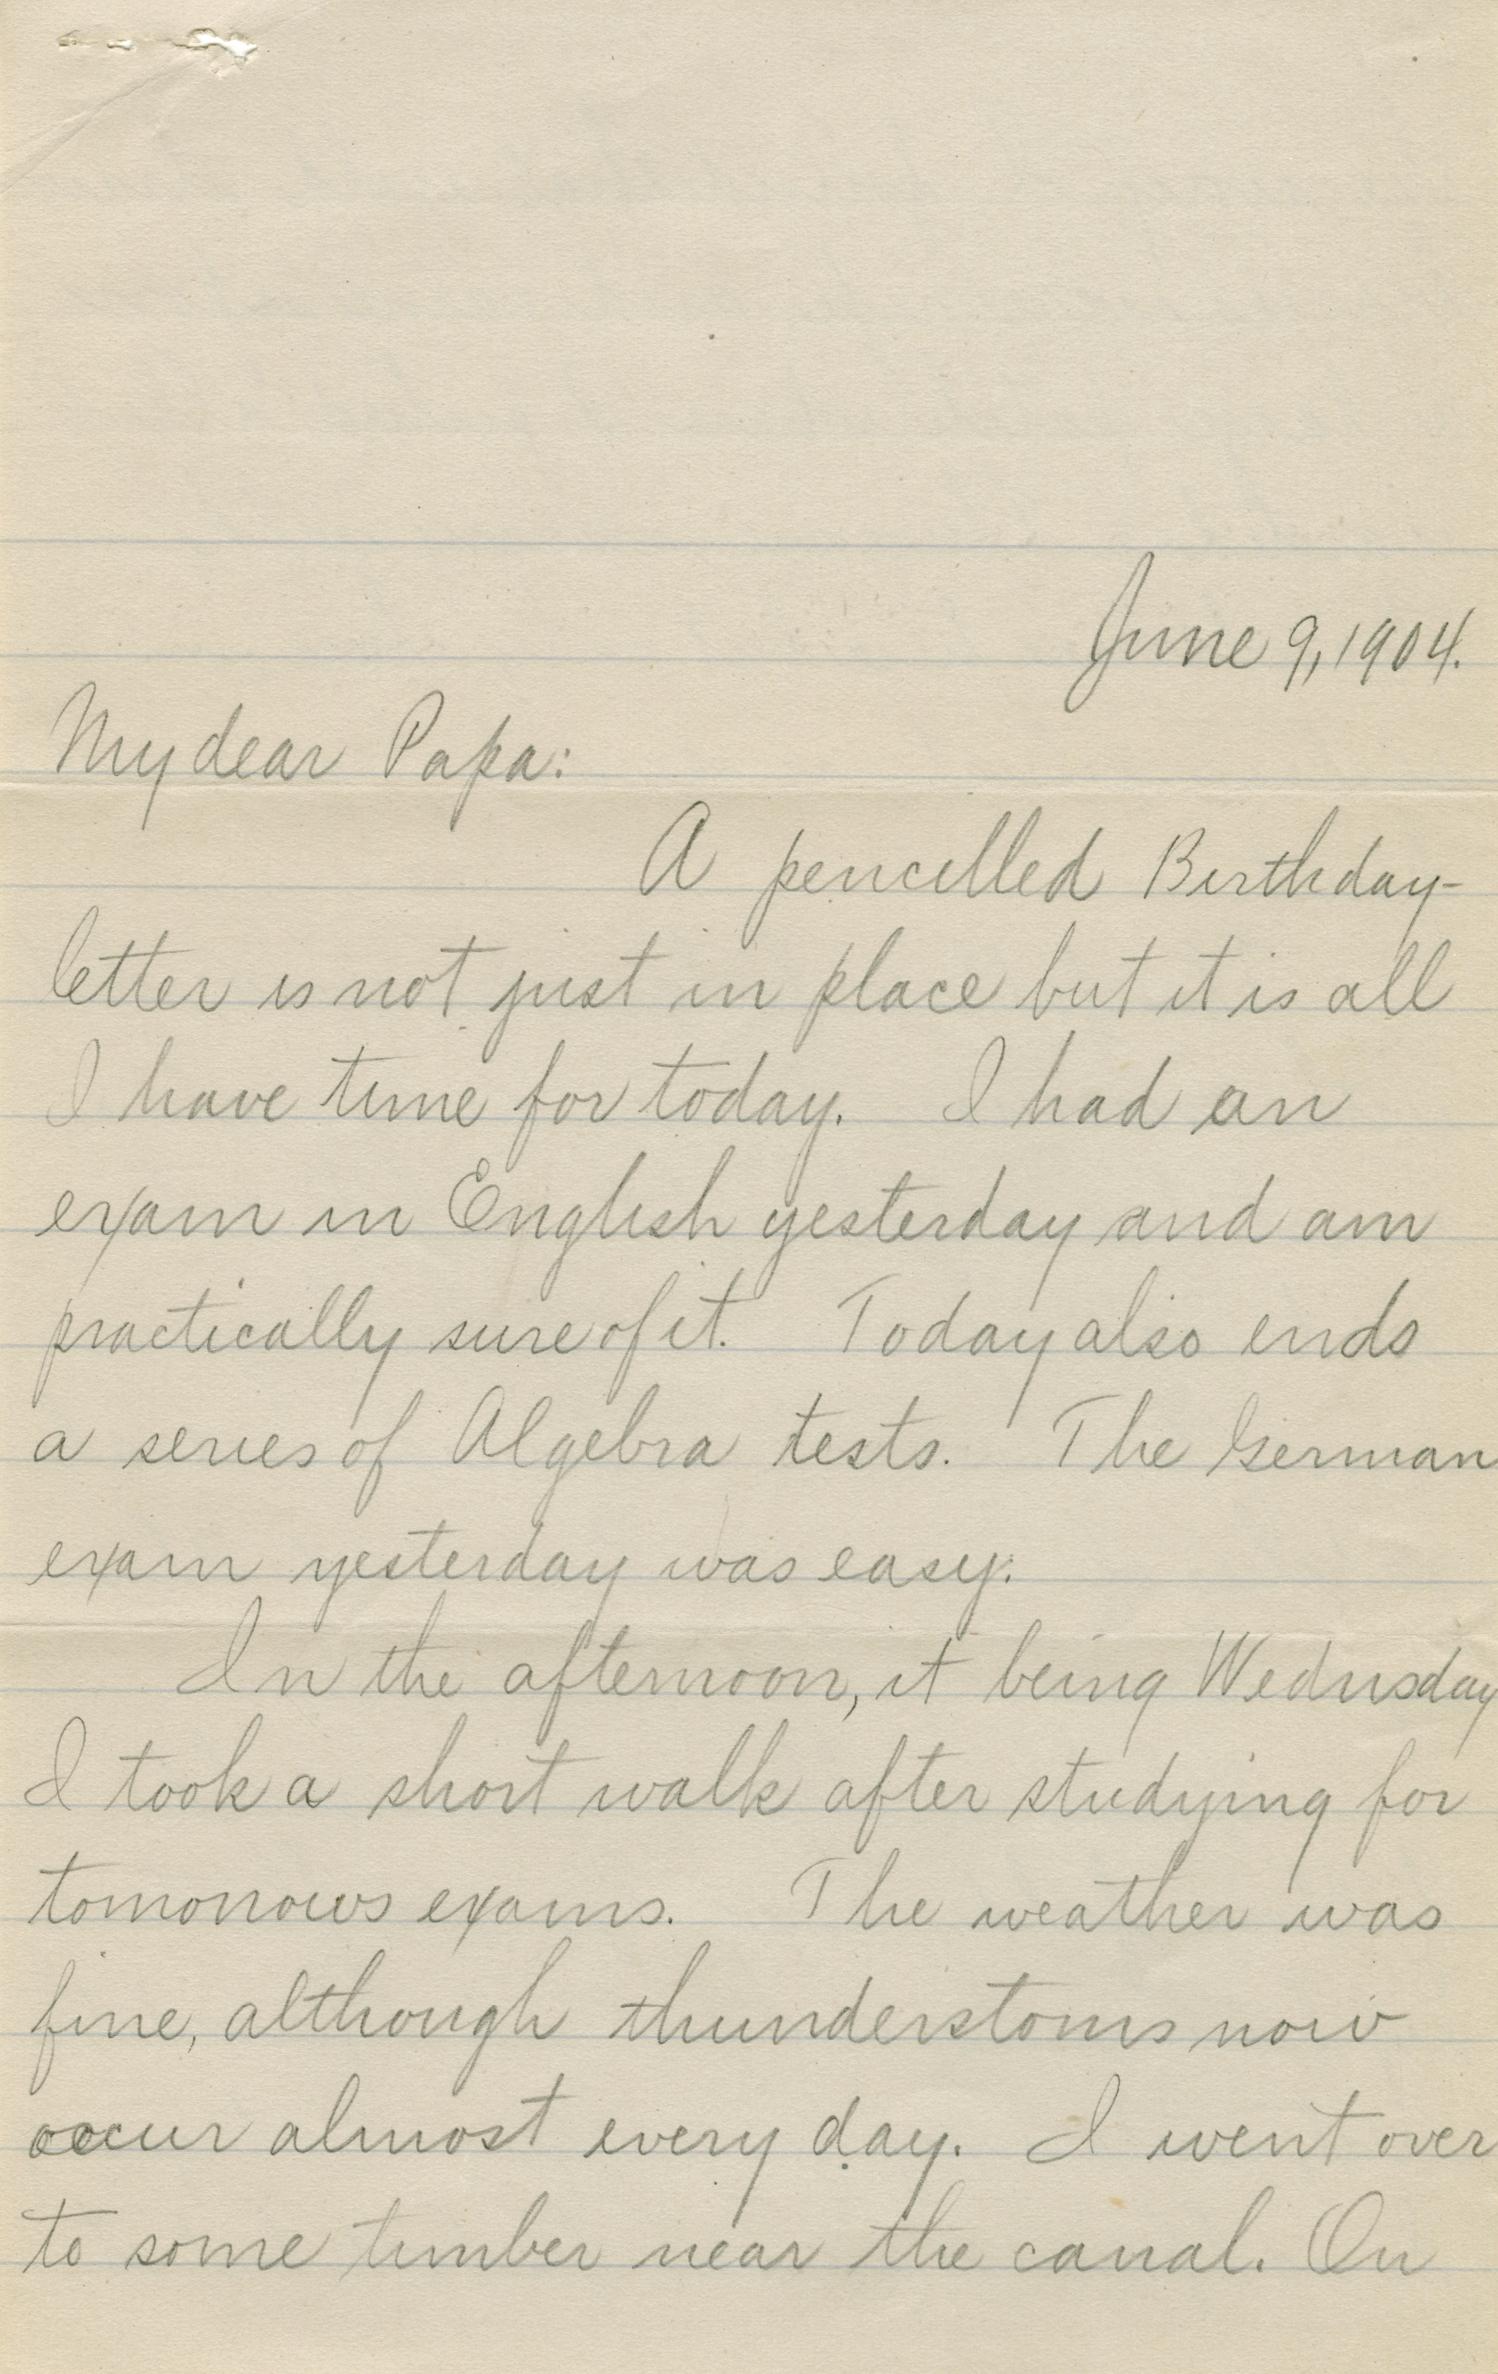 June 9, 1904.
My dear Papa:
A pencilled Birthday-
letter is not just in place but it is all
I have time for today. I had an
exam in English yesterday and am
practically sure of it. Today also ends
a series of Algebra tests. The German
exam yesterday was easy.
In the afternoon, it being Wednsday
I took a short walk after studying for
tomorrows exams. The weather was
fine, although thunderstoms now
occur almost every day. I went over
to some timber near the canal. On